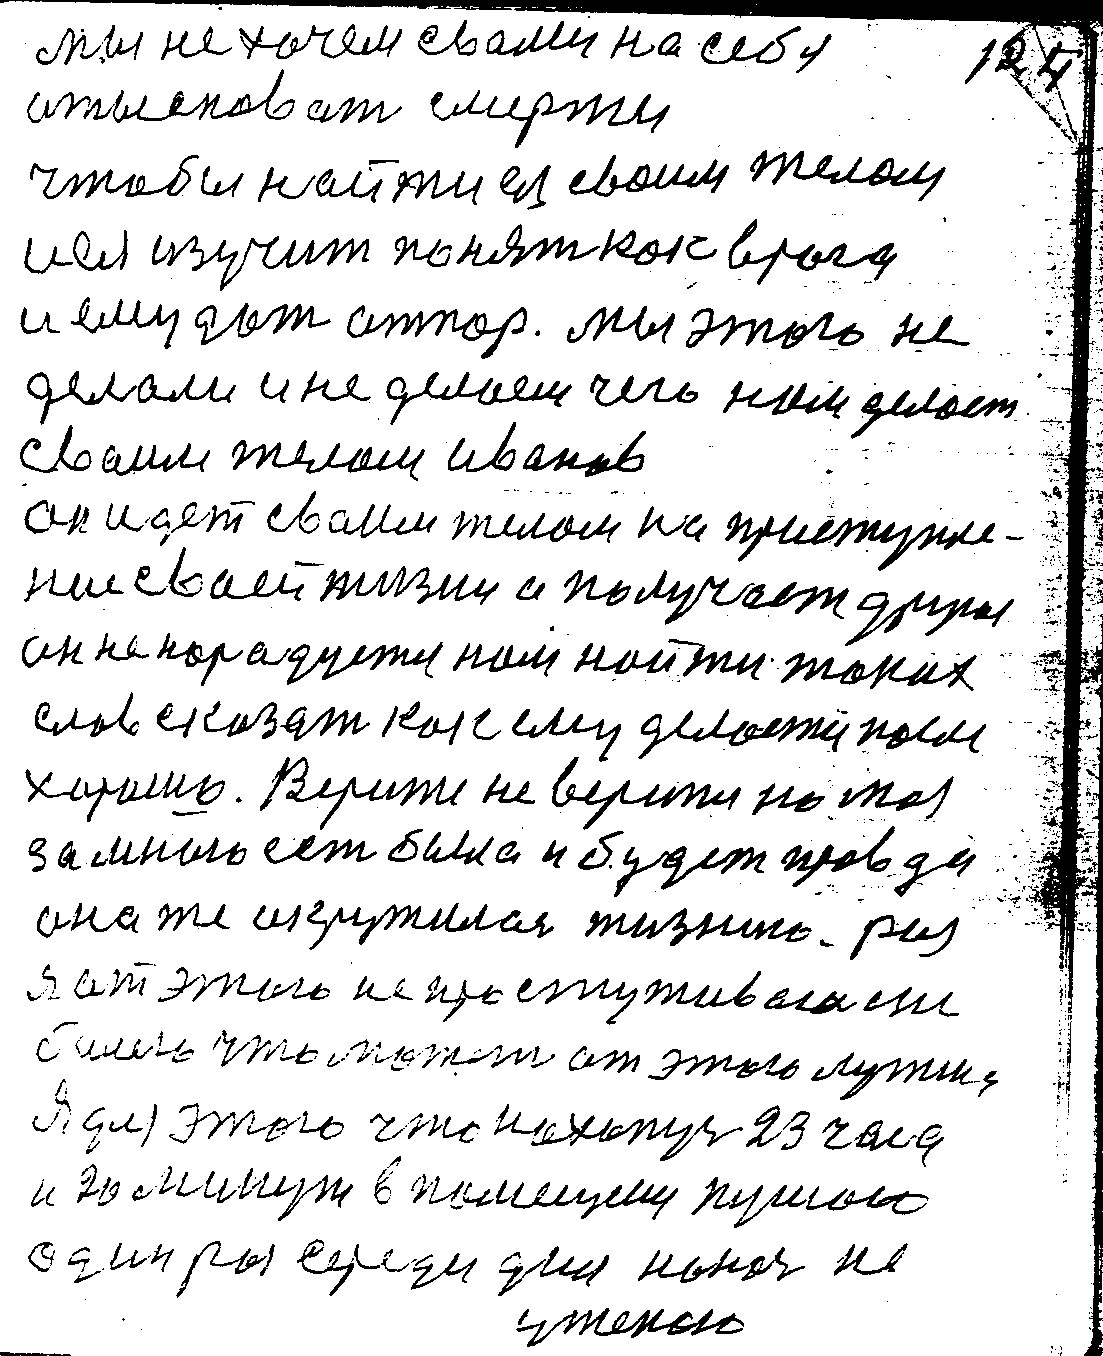 мы не хочем свами на себя 124
отысковат смерти
чтобы найти ея своим телом
и ея изучит понят как врага
и ему дат отпор. мы этого не
делали и не делаем чего нам делает
сваим телом иванов
он идет сваим телом на приступле-
ние сваей жизни а получает
он не порадуети нам найти таких
слов сказат как ему делаети
хорошо. Верити не верити но моя
замною ест была и будет правда
она же окружилася жизнию. раз
я от этого не простуживался
что может от этого
Я для этого что нахожуся 23 часа
и 30 минут в помещении
один раз среди дня никак не